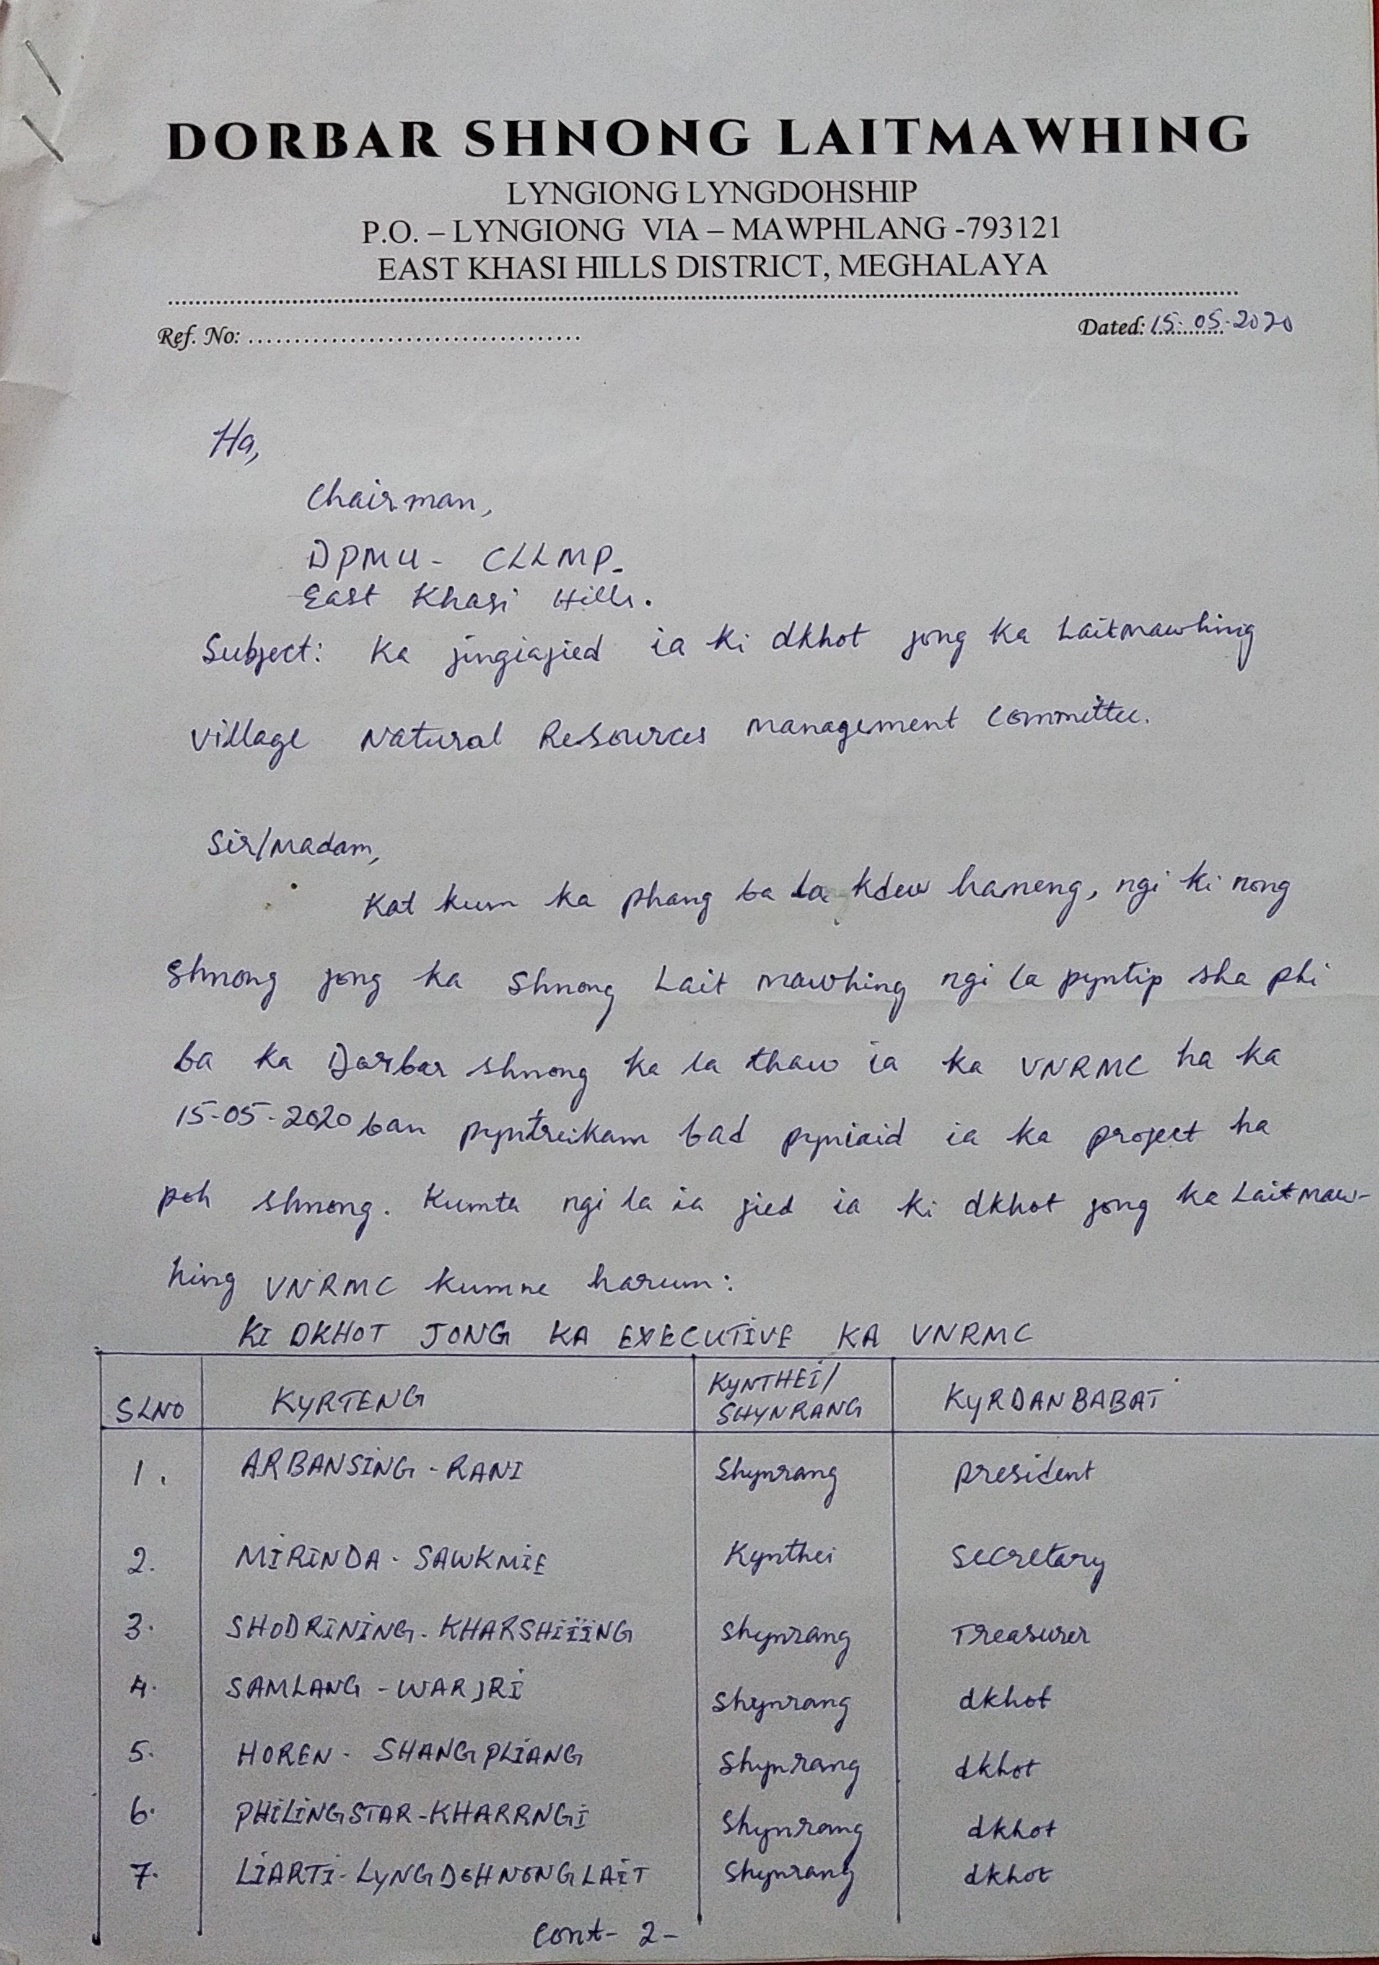 DORBAR SHNONG LAITMAWHING
LYNGIONG LYNGDOHSHIP
P.O. – LYNGIONG VIA – MAWPHLANG -793121
EAST KHASI HILLS DISTRICT, MEGHALAYA
Ref. No: .................................... Dated: 15-05-2020
Ha,
Chairman,
DPMU - CLLMP-
East Khasi Hills.
Subject: Ka jingiajied ia ki dkhot jong ka Laitmawhing
village Natural Resources management Committee.
Sir/Madam,
Kat kum ka phang ba la kdew haneng, ngi ki nong
shnong jong ka shnong Lait mawhing ngi la pyntip sha phi
ba ka Dorbar shnong ka la thaw ia ka VNRMC ha ka
15-05-2020 ban pyntreikam bad pyniaid ia ka project ha
poh shnong. Kumta ngi la ia jied ia ki dkhot jong ka Laitmaw-
hing VNRMC kumne harum:
KI DKHOT JONG KA EXECUTIVE KA VNRMC
SLNO KYRTENG KYNTHEI/ SHYNRANG KYRDANBABAT
1. ARBANSING - RANI Shynrang president
2. MIRINDA - SAWKMIE Kynthei Secretary
3. SHODRINING - KHARSHIIING Shynrang Treasurer
4. SAMLANG - WARJRI Shynrang dkhot
5. HOREN - SHANGPLIANG Shynrang dkhot
6. PHILINGSTAR - KHARRNGI Shynrang dkhot
7. LIARTI - LYNGDOHNONGLAIT Shynrang dkhot
Cont- 2 -